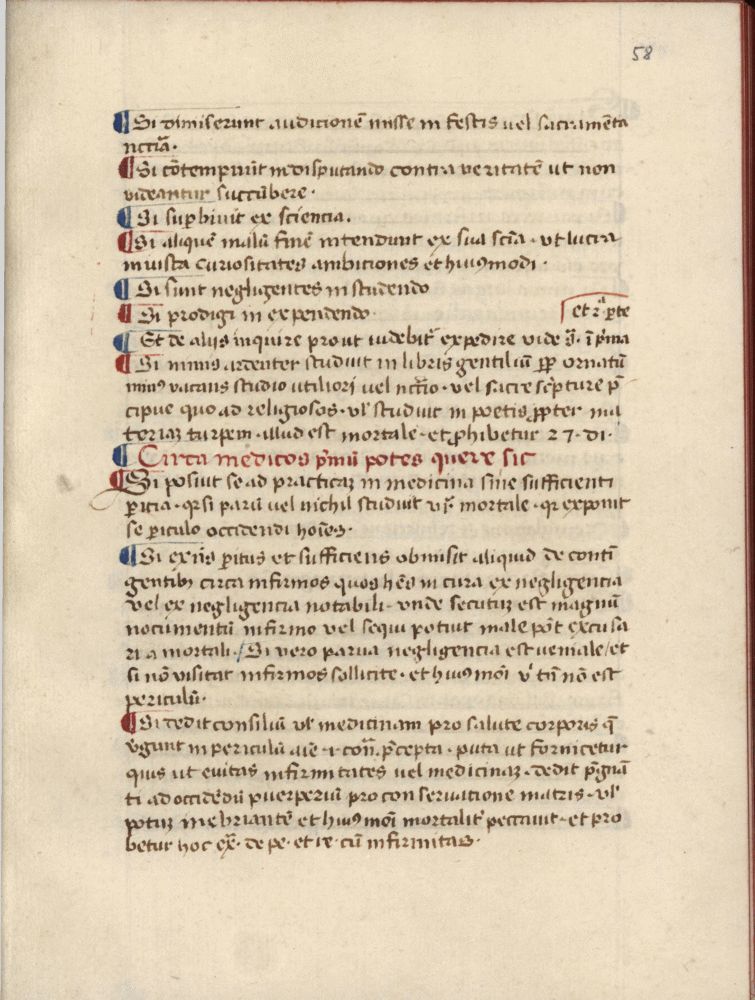 58
Si dimiserunt audicionē misse in festis uel sacramēta
nccīa.
Si cōtempnūt in disputando contra ueritatē ut non
uideantur succūbere.
Si supbiuit ex sciencia.
Si aliquē malū finē intendunt ex sua scīa. ut lucra
iniusta curiositates ambiciones et hiuꝰmodi.
Si sunt negligentes in studendo
Si prodigi in expendendo.
et 2ᵃ ꝑte
Et de alijs inquire prout uidebitʳ expedire vide s̄. ī pͥma
Si nimis ardenter studuit in libris gentiliū ꝓꝑ ornatū
minꝰ vacans studio utiliori uel nccͥo. vel sacre scͥpture p̄
cipue quo ad religiosos. vl' studuit in poetis ꝓpter ma
teriaꝫ turpem. illud est mortale. et ꝓhibetur 27. di.
Circa medicos pͥmū potes quere sic
Si posuit se ad practicaꝫ in medicina sine sufficienti
ꝑicia. qꝛ si parū uel nichil studuit mortale. qꝛ exponit
se ꝑiculo occidendi hoīes.
Si exn̄s ꝑitus et sufficiens obmisit aliquid de contī
gentibꝫ circa infirmos quos hēs in cura ex negligencia
vel ex negligencia notabili. vnde secutuꝫ est magnū
nocumentū infirmo vel sequi potuit male pōt excusa
ri a mortali. Si vero parua negligencia est ueniale et
si nō visitat infirmos sollicite. et hiuꝰmōi tn̄ nō est
periculū.
Si dedit consiliū vl' medicinam pro salute corporis q̄
vgunt in periculū aīe. & con̄. p̄cepta. puta ut fornicetur
quis ut euitas infirmitates uel medicinaꝫ. dedit p̄gnā
ti ad occidēdū puerperiū pro conseruatione matris. vl'
potuꝫ inebriantē et hiuꝰmōi mortalitʳ peccauit. et pro
betur hoc ex̄. de pe. et re. cū infirmitas.